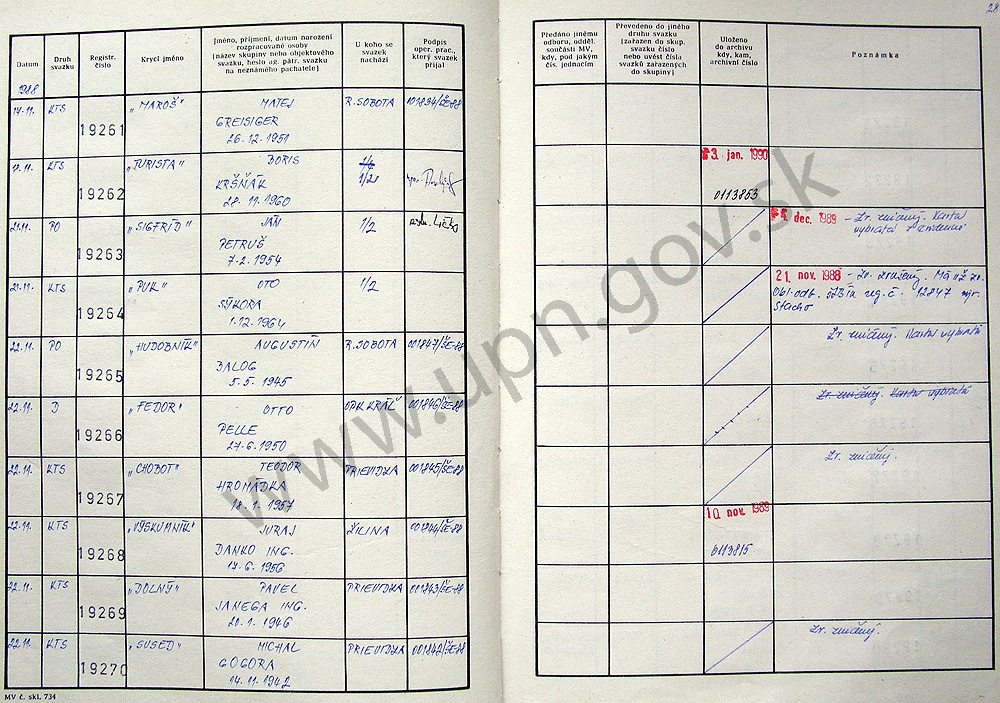 28
Datum
Druh svazku
Registr. číslo
Krycí jméno
Jméno, příjmení, datum narození
rozpracované osoby
(název skupiny nebo objektového
svazku, heslo ag. pátr. svazku
na neznámého pachatele)
U koho se svazek nachází
Podpis oper. prac., který svazek přijal
Předáno jinému odboru, odděl. součásti MV, kdy, pod jakým čís. jednacím
Převedeno do jiného druhu svazku (zařazen do skup. svazku číslo nebo uvést čísla svazků zařazených do skupiny)
Uloženo do archivu kdy, kam, archivní číslo
Poznámka
1988
17.11. KTS 19261 „MAROŠ" MATEJ R.SOBOTA 001834/ČE-88
GREISIGER
26.12.1951
17.11. KTS 19262 „JURISTA" BORIS 1/2 23. jan. 1990
KRŠŇÁK
28.11.1960 0113853
21.11. PO 19263 „SIGFRÍD" JÁN 1/2 dec. 1989 - Zv. zničený. Karta
PETRUŠ vybratá
7.2.1954
21.11. KTS 19264 „PUK" OTO 1/2 21. nov. 1988 - Zv. zrušený. Má „Z zv.
SÝKORA Obl. odb. reg. č. 12847
1.12.1964 Stacho
22.11. PO 19265 „HUDOBNÍK" AUGUSTÍN R.SOBOTA 001847/ČE-88 Zv. zničený. Karta vybratá
BALOG
5.5.1945
22.11. D 19266 „FEDOR" OTTO OPK KRÁĽ 001846/ČE-88 Zv. zničený. Karta vybratá
PELLE
27.6.1950
22.11. KTS 19267 „CHOBOT" TEODOR PRIEVIDZA 001845/ČE-88 Zv. zničený.
HROMÁDKA
18.1.1957
22.11. KTS 19268 „VÝSKUMNÍK" JURAJ ŽILINA 001844/ČE-88 10. nov. 1989
DANKO ING.
17.6.1956 0113815
22.11. KTS 19269 „DOLNÝ" PAVEL PRIEVIDZA 001843/ČE-88
JANEGA ING.
20.1.1946
22.11. KTS 19270 „SUSED" MICHAL PRIEVIDZA 001842/ČE-88 Zv. zničený.
GOGORA
14.11.1942
MV č. skl. 734
www.upn.gov.sk